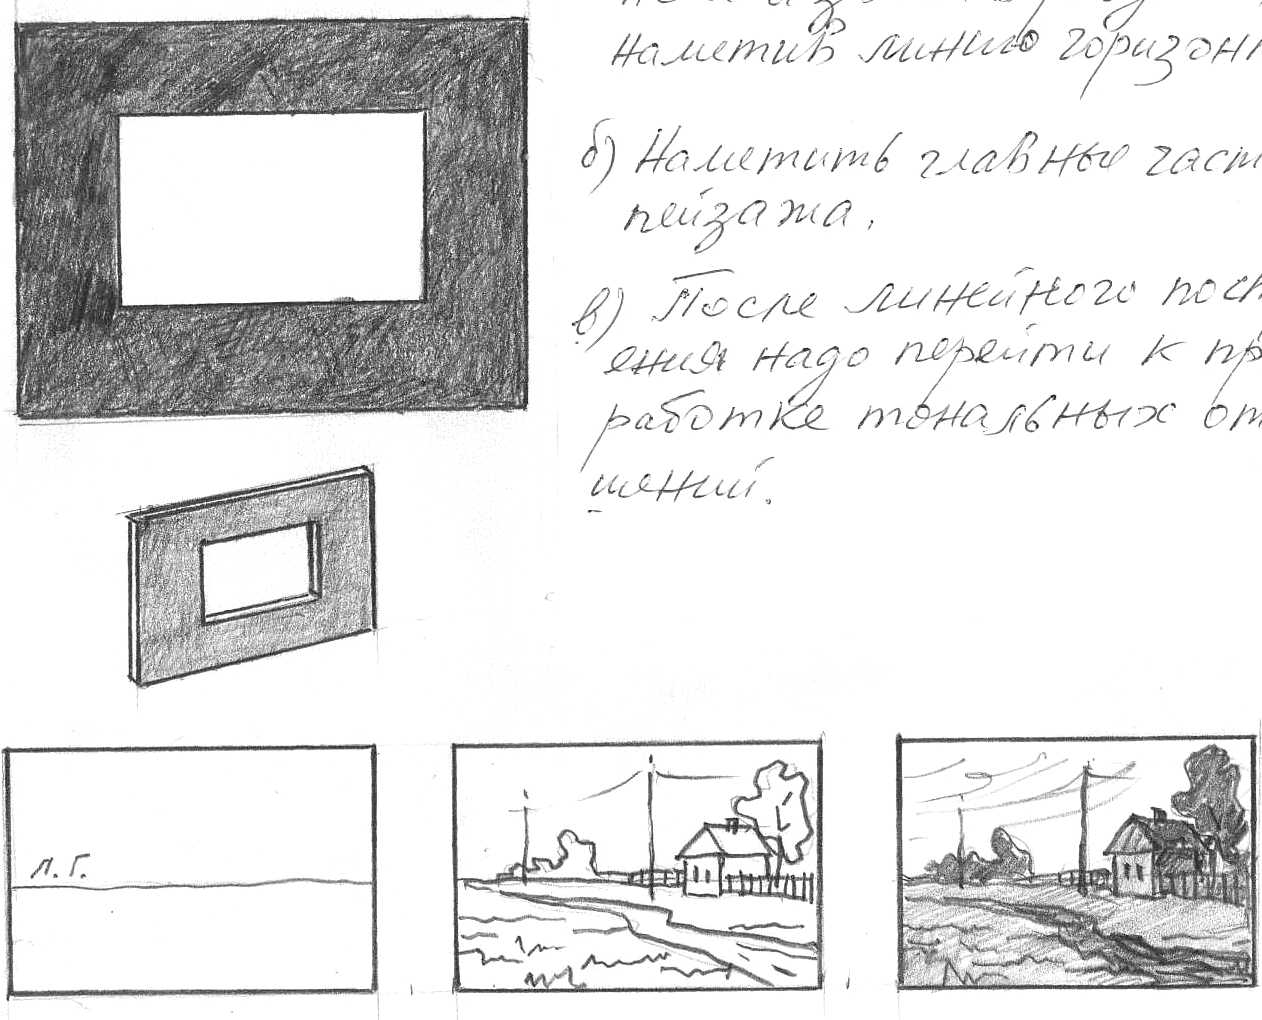 наметив линию горизон
б) Наметить главные част
пейзажа.
в) После линейного пост
ения надо перейти к пр
работке тональных от
шений.
Л. Г.